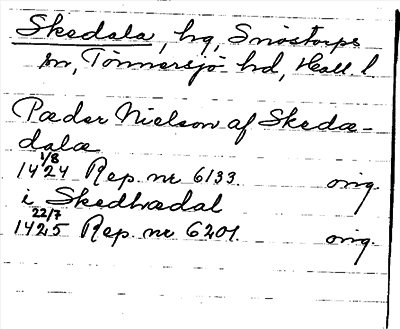 Skedala, hg, Snöstorps
sn, Tönnersjö hd, Hall. l
Pæder Nielson af Skedæ-
dalæ
1424 1/8 Rep. nr 6133. orig.
i Skedhædal
1425 22/7 Rep. nr 6201. orig.